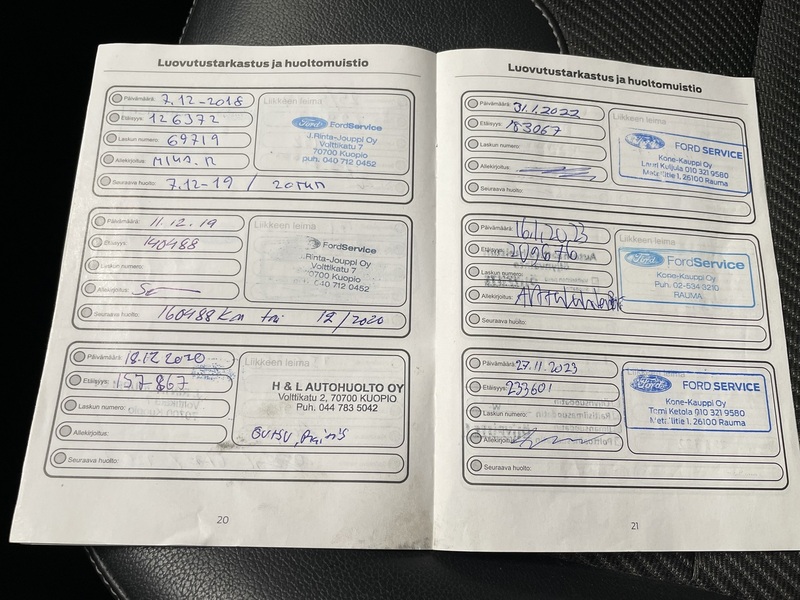 Luovutustarkastus ja huoltomuistio
Päivämäärä: 7.12-2018
Etäisyys: 126372
Laskun numero: 69719
Allekirjoitus: MIKA.R
Seuraava huolto: 7.12-19 / 20TKM
Liikkeen leima
Ford FordService
J.Rinta-Jouppi Oy
Volttikatu 7
70700 Kuopio
puh. 040 712 0452
Päivämäärä: 11.12.19
Etäisyys: 140488
Laskun numero:
Allekirjoitus:
Seuraava huolto: 160488 Km tai 12/2020
Liikkeen leima
FordService
.Rinta-Jouppi Oy
Volttikatu 7
70700 Kuopio
040 712 0452
Päivämäärä: 18.12.2020
Etäisyys: 157867
Laskun numero:
Allekirjoitus:
Seuraava huolto:
Liikkeen leima
H & L AUTOHUOLTO OY
Volttikatu 2, 70700 KUOPIO
Puh. 044 783 5042
20
Luovutustarkastus ja huoltomuistio
Päivämäärä: 31.1.2022
Etäisyys: 183067
Laskun numero:
Allekirjoitus:
Seuraava huolto:
Liikkeen leima
Ford FORD SERVICE
Kone-Kauppi Oy
Lauri Kuljula 010 321 9580
Metallitie 1, 26100 Rauma
Päivämäärä: 16.1.2023
Etäisyys: 209676
Laskun numero:
Allekirjoitus:
Seuraava huolto:
Liikkeen leima
Ford FordService
Kone-Kauppi Oy
Puh. 02-534 3210
RAUMA
Päivämäärä: 27.11.2023
Etäisyys: 233601
Laskun numero:
Allekirjoitus:
Seuraava huolto:
Liikkeen leima
Ford FORD SERVICE
Kone-Kauppi Oy
Tomi Ketola 010 321 9580
Metallitie 1, 26100 Rauma
21